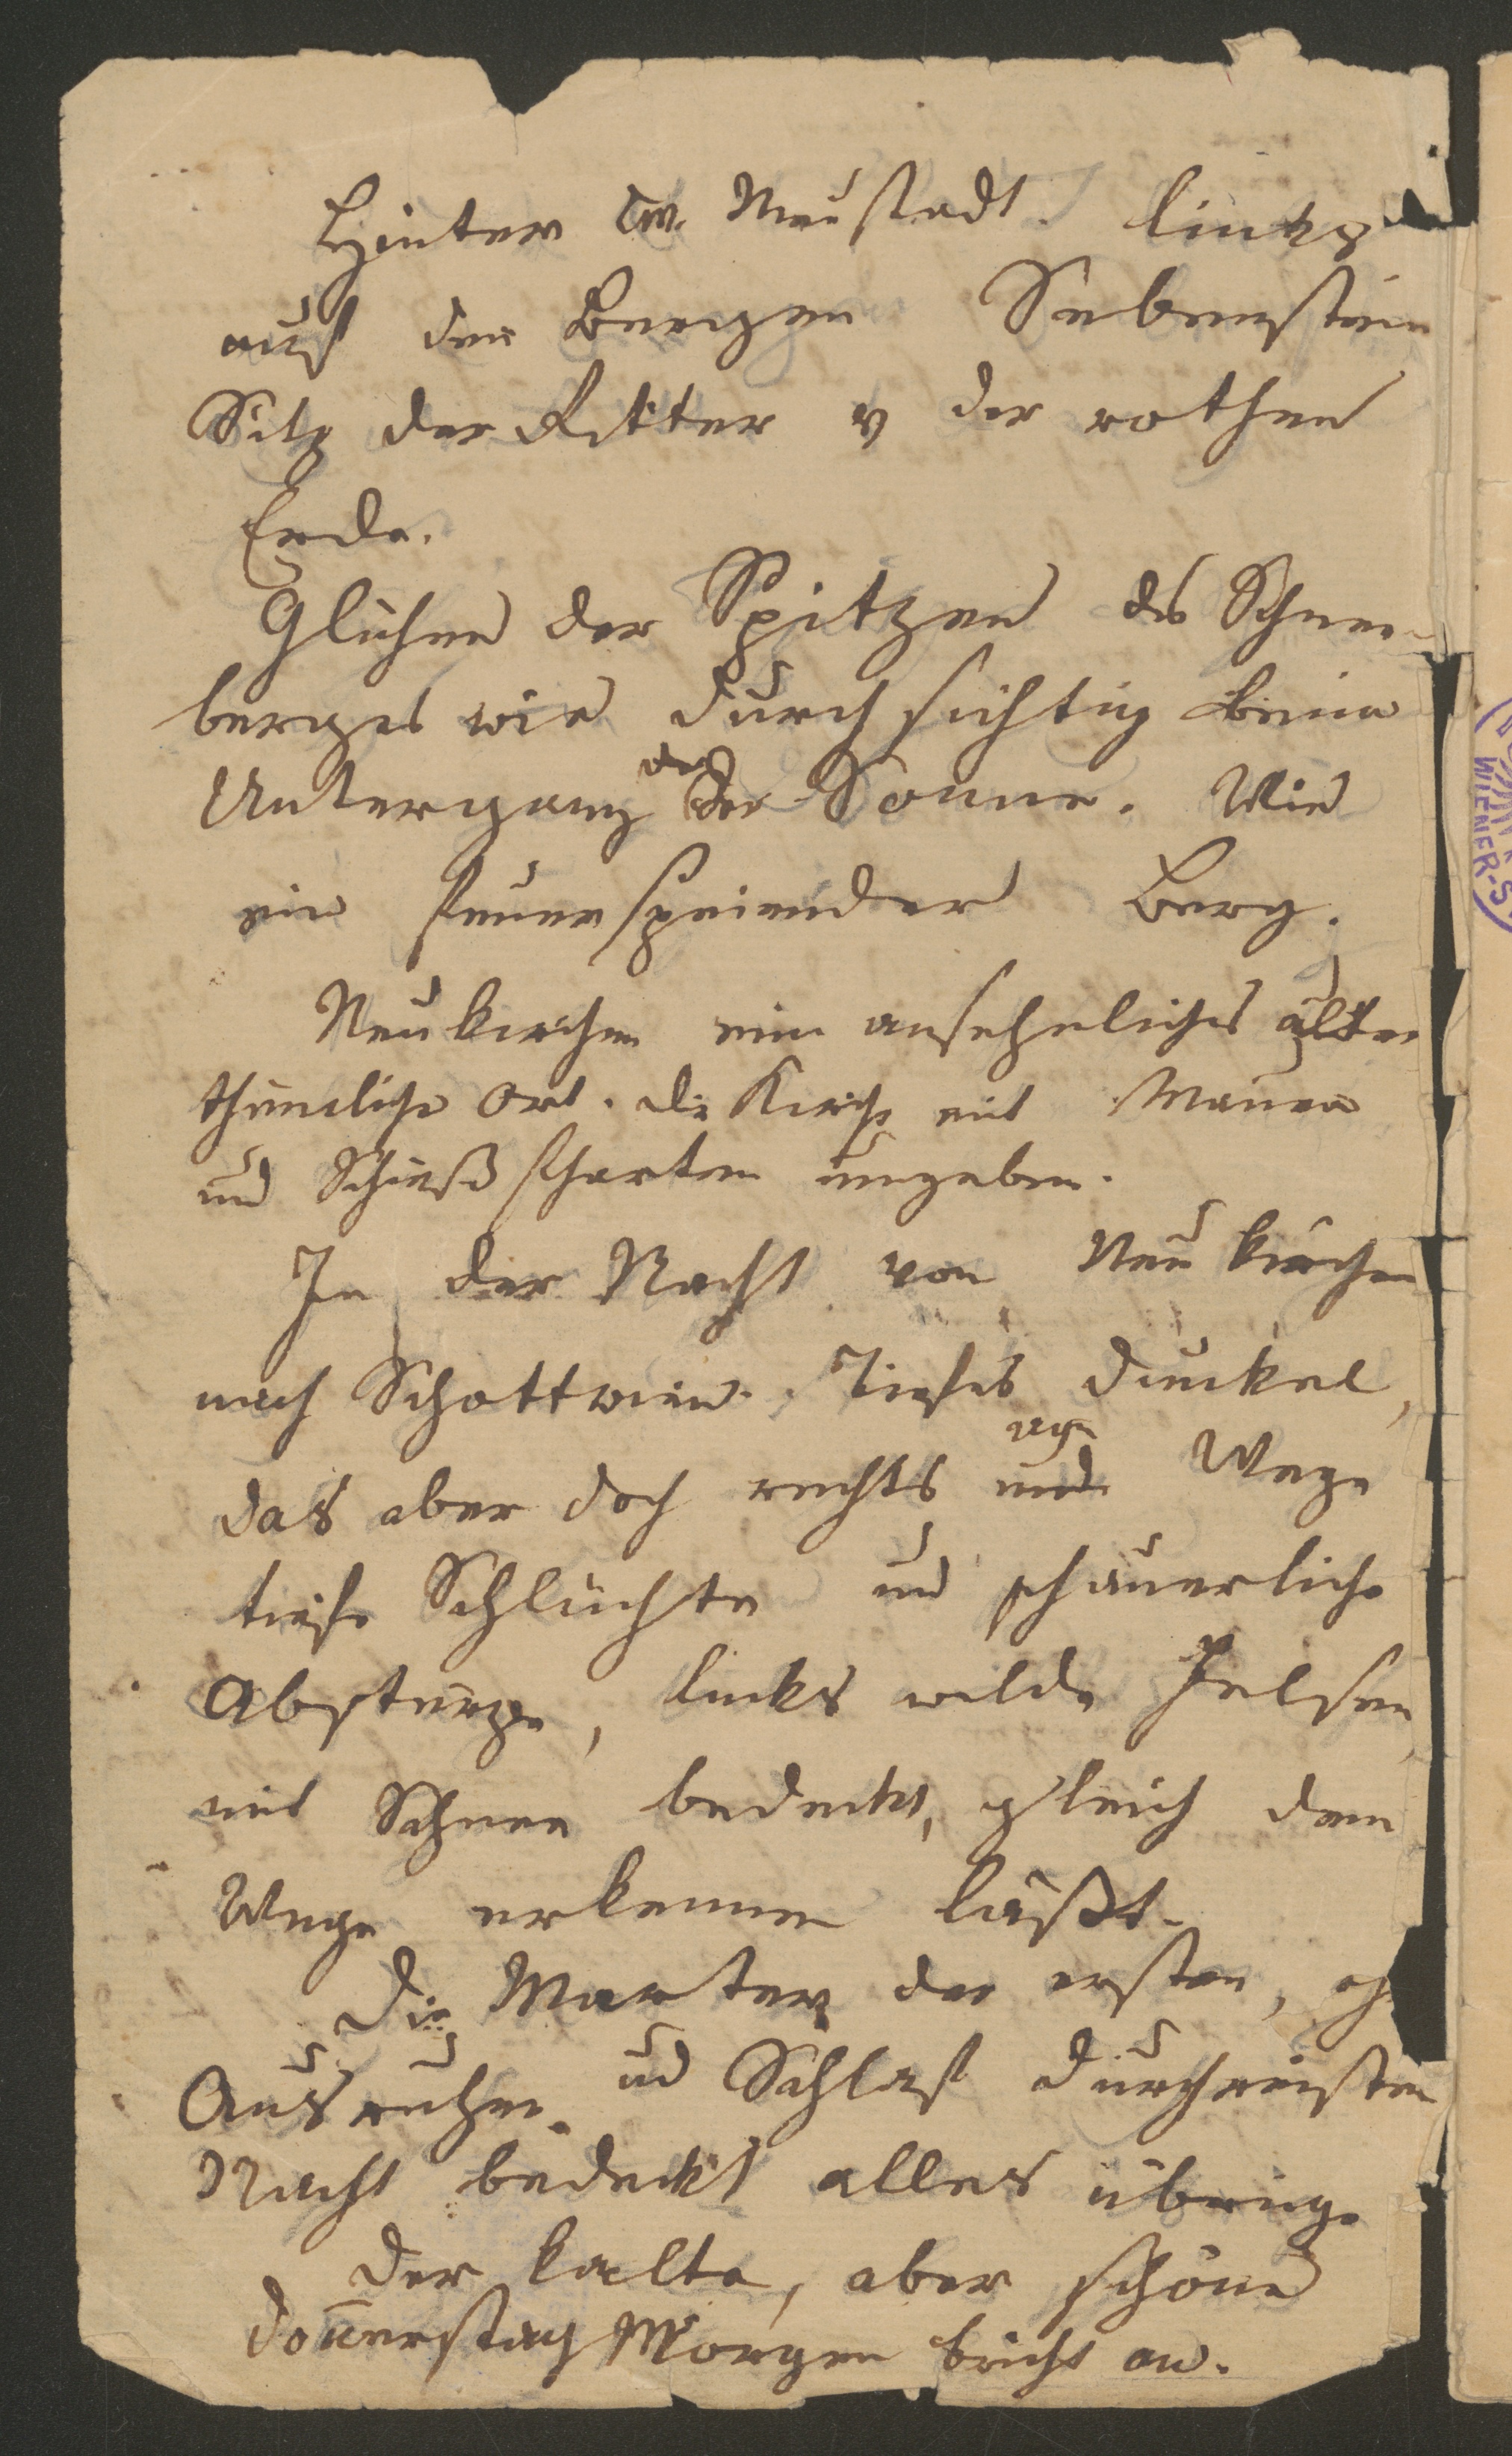 Hinter W. Neustadt. links
auf den Bergen Sebenstein
Sitz der Ritter v der rothen
Erde.
Glühen der Spitzen des Schnee-
berges wie durchsichtig beim
Untergang der Sonne. Wie
ein feuerspeiender Berg.
Neukirchen ein ansehnliches alter
thümliche Ort. die Kirche mit Mauern
und Schießscharten umgeben.
In der Nacht von Neukirchen
nach Schottwien. Tiefes Dunkel,
das aber doch rechts am Wege
tiefe Schluchten und schauerliche
Abstürze, links wilde Felsen
mit Schnee bedeckt, gleich dem
Wege erkennen läßt.
Die Marter der ersten,
Ausruhen und Schlaf durchreisten
Nacht bedeckt alles übrige
Der kalte, aber schöne
Donnerstag Morgen bricht an.
WIENER-S